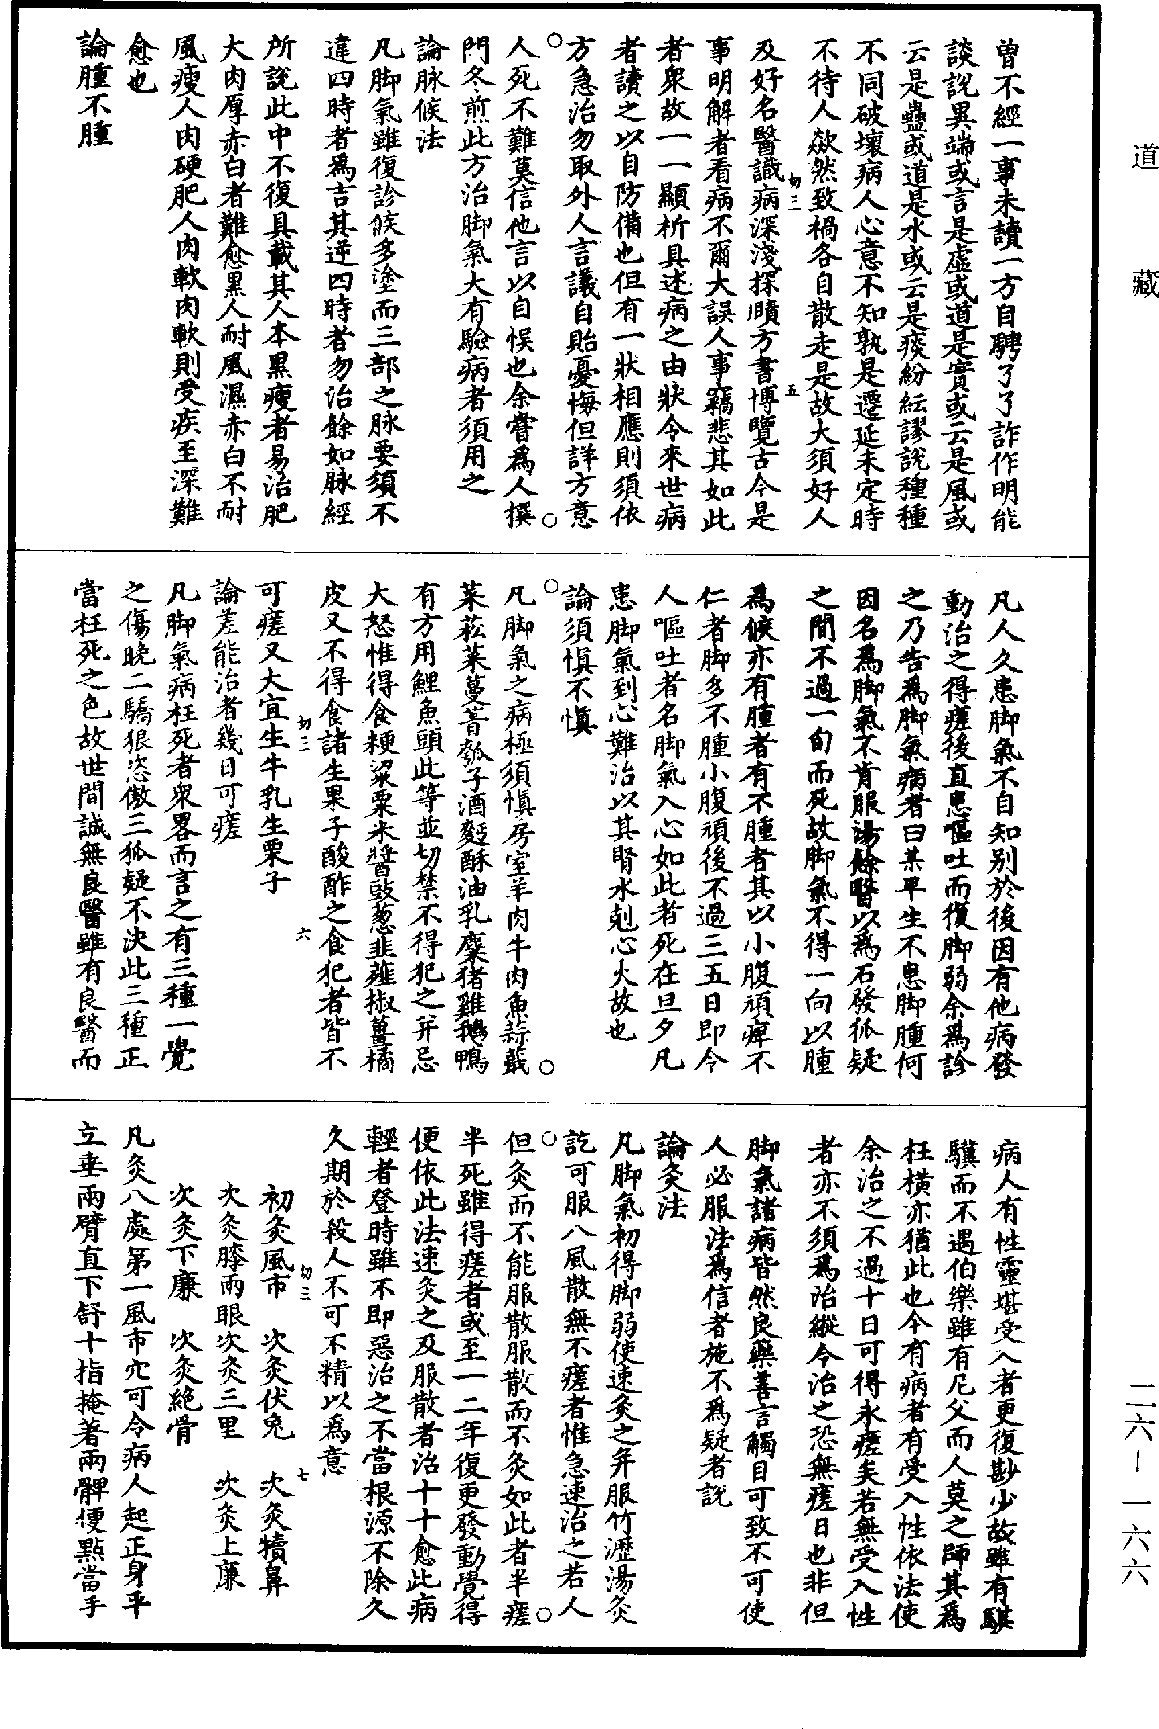 道藏
曾不經一事未讀一方自騁了了詐作明能
談說異端或言是虛或道是實或云是風或
云是蠱或道是水或云是痰紛紜謬說種種
不同破壞病人心意不知孰是遷延未定時
不待人欻然致禍各自散走是故大須好人
切三 五
及好名醫識病深淺探賾方書博覽古今是
事明解者看病不爾大誤人事竊悲其如此
者衆故一一顯析具述病之由狀令來世病
者讀之以自防備也但有一狀相應則須依
方急治勿取外人言議自貽憂悔但詳方意
人死不難莫信他言以自悞也余嘗爲人撰
門冬煎此方治脚氣大有驗病者須用之
論脉候法
凡脚氣雖復診候多塗而三部之脉要須不
違四時者爲吉其逆四時者勿治餘如脉經
所說此中不復具載其人本黑瘦者易治肥
大肉厚赤白者難愈黑人耐風濕赤白不耐
風瘦人肉硬肥人肉軟肉軟則受疾至深難
愈也
論腫不腫
凡人久患脚氣不自知別於後因有他病發
動治之得瘥後直患嘔吐而復脚弱余爲診
之乃告爲脚氣病者曰某平生不患脚腫何
因名爲脚氣不肯服湯餘醫以爲石發狐疑
之間不過一旬而死故脚氣不得一向以腫
爲候亦有腫者有不腫者其以小腹頑痺不
仁者脚多不腫小腹頑後不過三五日即令
人嘔吐者名脚氣入心如此者死在旦夕凡
患脚氣到心難治以其腎水剋心火故也
論須愼不愼
凡脚氣之病極須愼房室羊肉牛肉魚蒜蕺
菜菘菜蔓菁瓠子酒麪酥油乳糜猪雞鵝鴨
有方用鯉魚頭此等並切禁不得犯之并忌
大怒惟得食粳粱粟米醬豉葱韭薤椒薑橘
皮又不得食諸生果子酸酢之食犯者皆不
切三 六
可瘥又大宜生牛乳生栗子
論差能治者幾日可瘥
凡脚氣病枉死者衆畧而言之有三種一覺
之傷晚二驕狠恣傲三狐疑不決此三種正
當枉死之色故世間誠無良醫雖有良醫而
病人有性靈堪受入者更復尠少故雖有騏
驥而不遇伯樂雖有尼父而人莫之師其爲
枉橫亦猶此也今有病者有受入性依法使
余治之不過十日可得永瘥矣若無受入性
者亦不須爲治縱令治之恐無瘥日也非但
脚氣諸病皆然良藥善言觸目可致不可使
人必服法爲信者施不爲疑者說
論灸法
凡脚氣初得脚弱使速灸之并服竹瀝湯灸
訖可服八風散無不瘥者惟急速治之若人
但灸而不能服散服散而不灸如此者半瘥
半死雖得瘥者或至一二年復更發動覺得
便依此法速灸之及服散者治十十愈此病
輕者登時雖不即惡治之不當根源不除久
久期於殺人不可不精以爲意
切三 七
初灸風市　次灸伏兎　次灸犢鼻
次灸膝兩眼次灸三里　次灸上廉
次灸下廉　次灸絶骨
凡灸八處第一風市穴可令病人起正身平
立垂兩臂直下舒十指掩著兩髀便點當手
二六－一六六